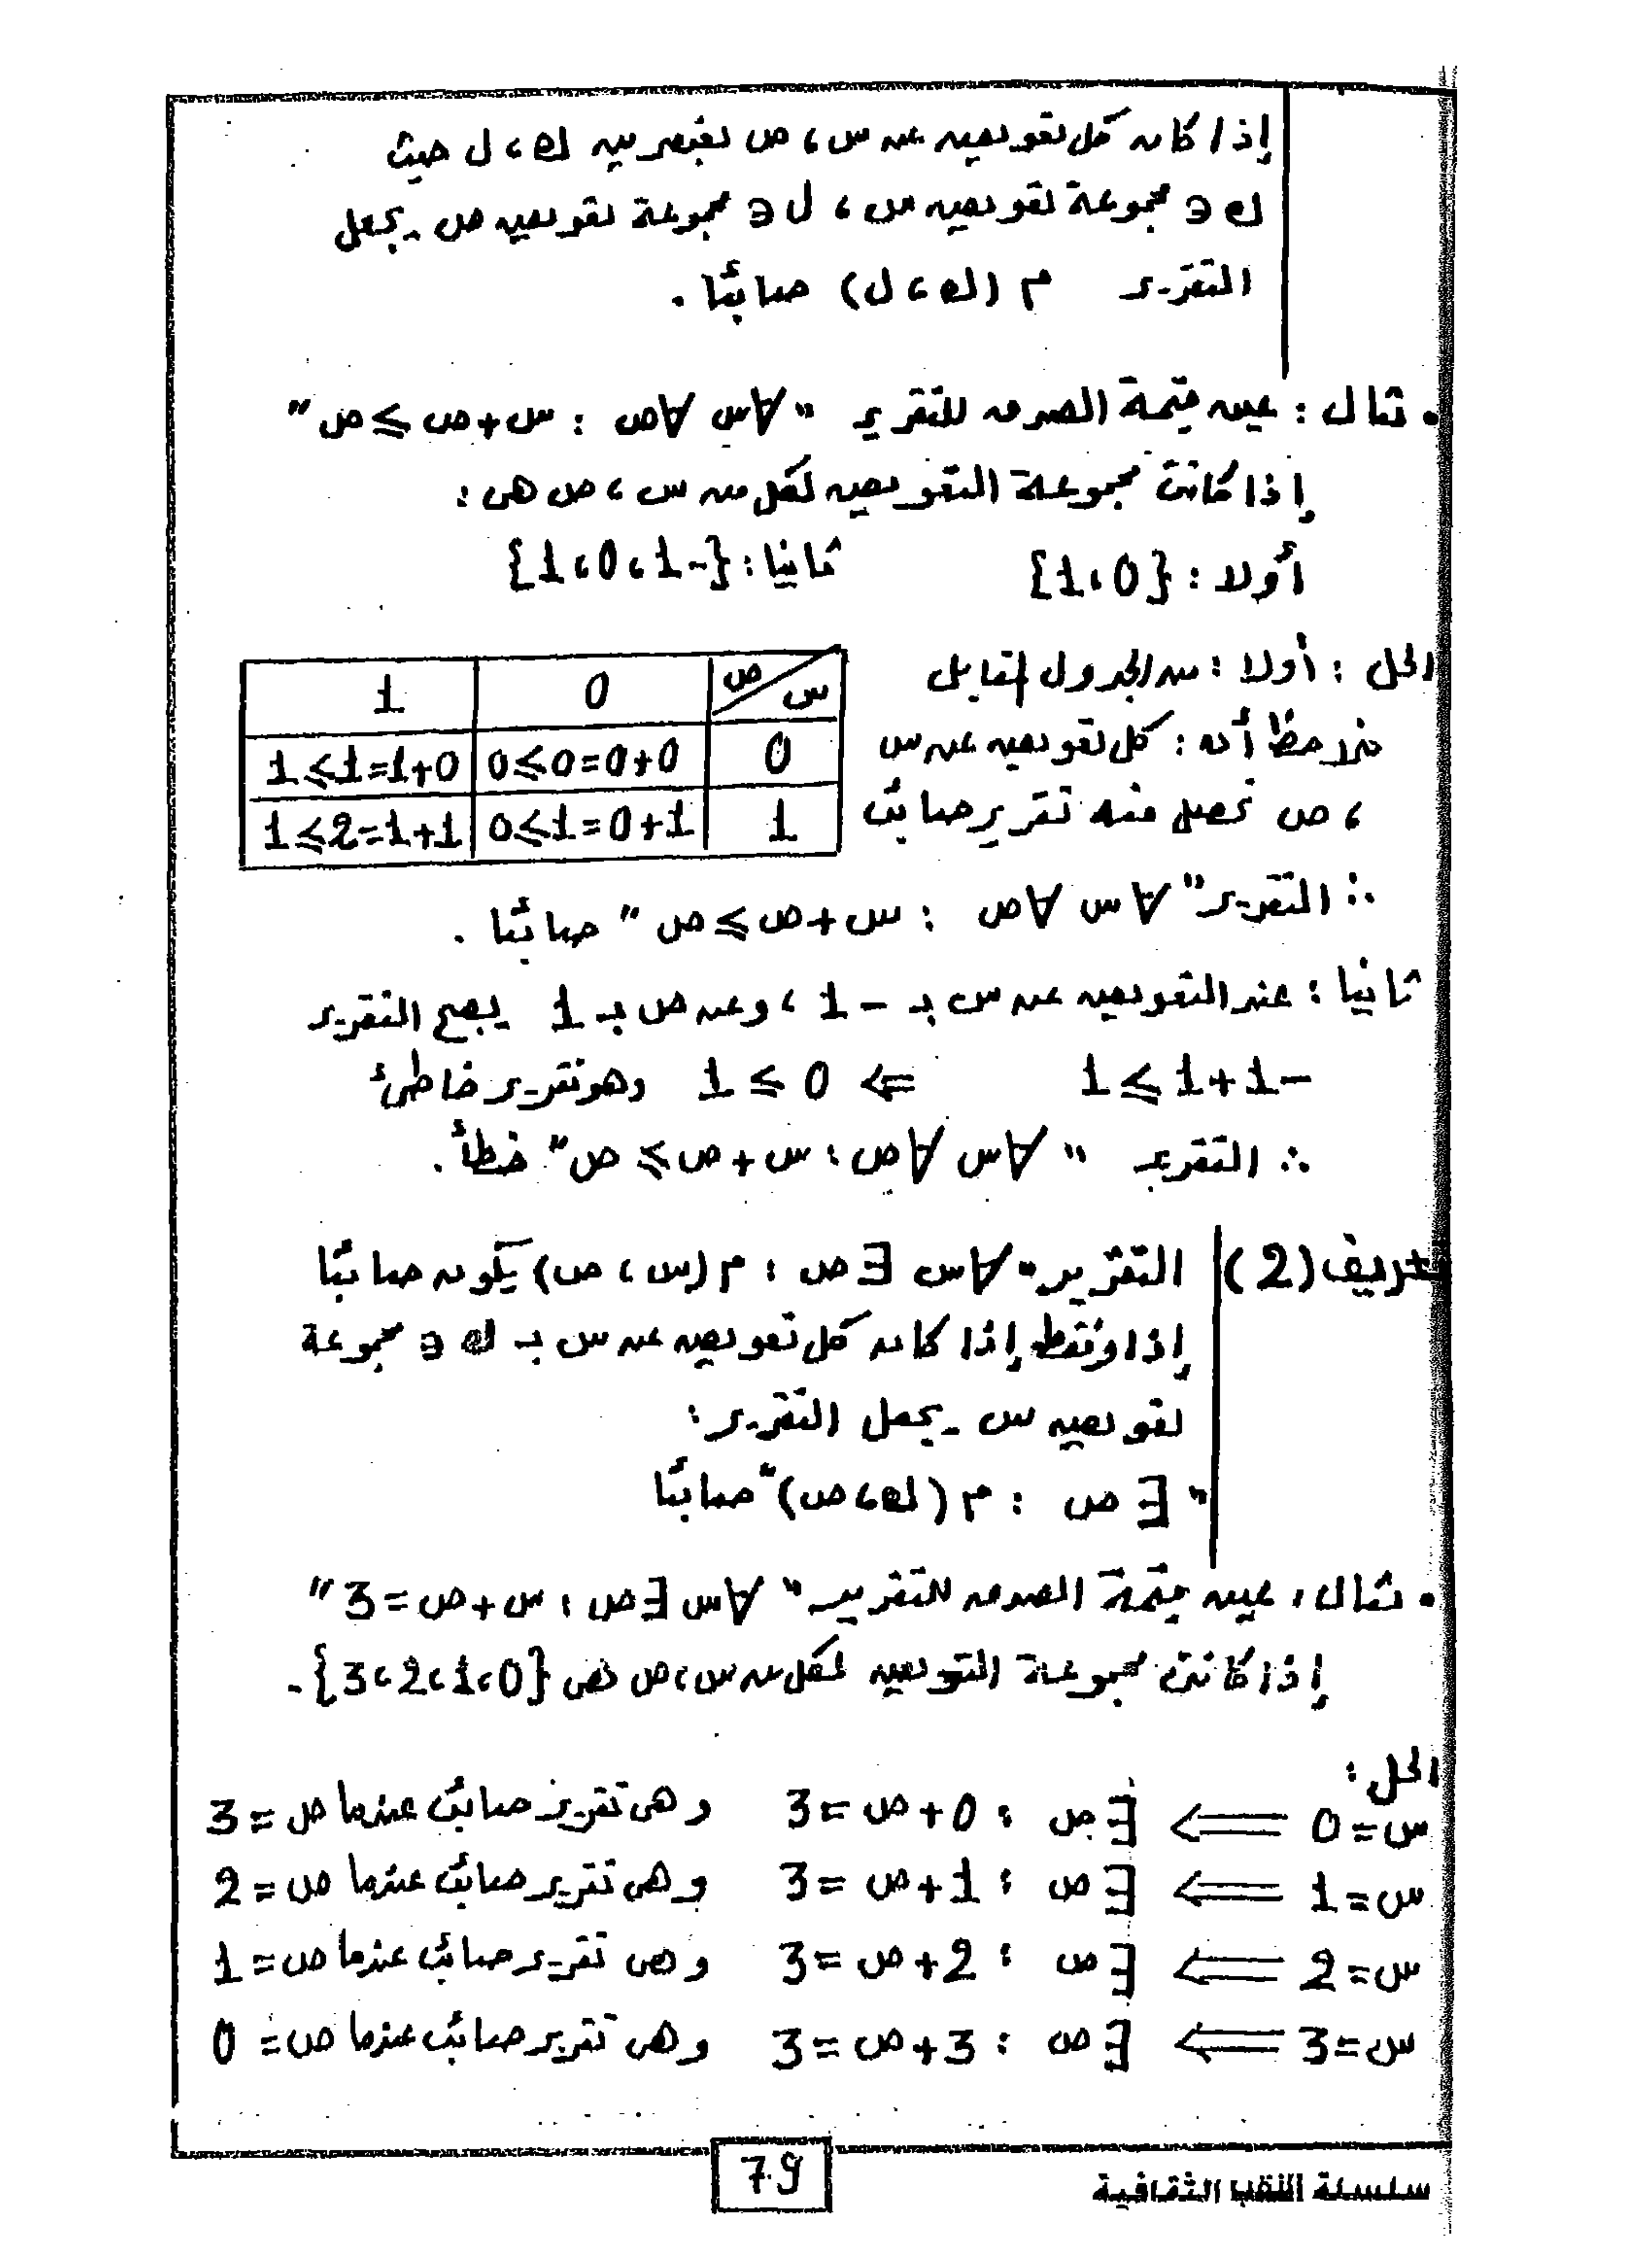 إذا كان كل تعويض عن س ، ص بعنصرين ك ، ل حيث
ك ∈ مجموعة تعويض س ، ل ∈ مجموعة تعويض ص يجعل
التقرير م (ك ، ل) صائبًا .
. مثال : عين قيمة الصدق للتقرير " ∀س ∀ص : س + ص ⩾ ص "
إذا كانت مجموعة التعويض لكل من س ، ص هى :
أولا : {0 ، 1} ثانيا : {-1 ، 0 ، 1}
الحل : أولا : من الجدول المقابل
نلاحظ أن : كل تعويض عن س
، ص نحصل منه تقرير صائب
س / ص | 0 | 1
0 | 0+0=0⩾0 | 0+1=1⩾1
1 | 1+0=1⩾0 | 1+1=2⩾1
∴ التقرير " ∀ س ∀ص : س + ص ⩾ ص " صائبا .
ثانيا : عند التعويض عن س بـ -1 ، وعن ص بـ 1 يصبح التقرير
-1+1 ⩾ 1 ⇐ 0 ⩾ 1 وهو تقرير خاطئ
∴ التقرير " ∀س ∀ص : س + ص ⩾ ص " خطأ .
تعريف (2) التقرير " ∀س ∃ص : م (س ، ص) يكون صائبًا
إذا وفقط إذا كان كل تعويض عن س بـ ك ∈ مجموعة
تعويض س يجعل التقرير :
" ∃ ص : م (ك ، ص) " صائبًا
. مثال : عين قيمة الصدق للتقرير " ∀س ∃ص : س + ص = 3 "
إذا كانت مجموعة التعويض لكل من س ، ص هى {0 ، 1 ، 2 ، 3} .
الحل :
س = 0 ⇐ ∃ص : 0 + ص = 3 وهى تقرير صائب عندما ص = 3
س = 1 ⇐ ∃ص : 1 + ص = 3 وهى تقرير صائب عندما ص = 2
س = 2 ⇐ ∃ص : 2 + ص = 3 وهى تقرير صائب عندما ص = 1
س = 3 ⇐ ∃ص : 3 + ص = 3 وهى تقرير صائب عندما ص = 0
79
سلسلة النقب الثقافية